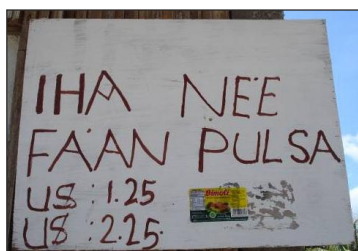 IHA NEE
FA'AN PULSA
US : 1.25
US : 2.25.
Bimoli